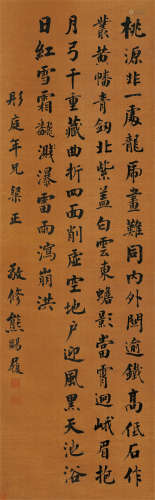 桃源非一處龍虎畫難同內外關逾鐵高低石作
叢黃幡青劒北紫蓋白雲東蟾影當霄迥峨眉抱
月弓千重藏曲折四面削虛空地戶迎風黑天池浴
日紅雪霜諁濺瀑雷雨瀉崩洪
彤庭年兄粲正
敬修熊賜履